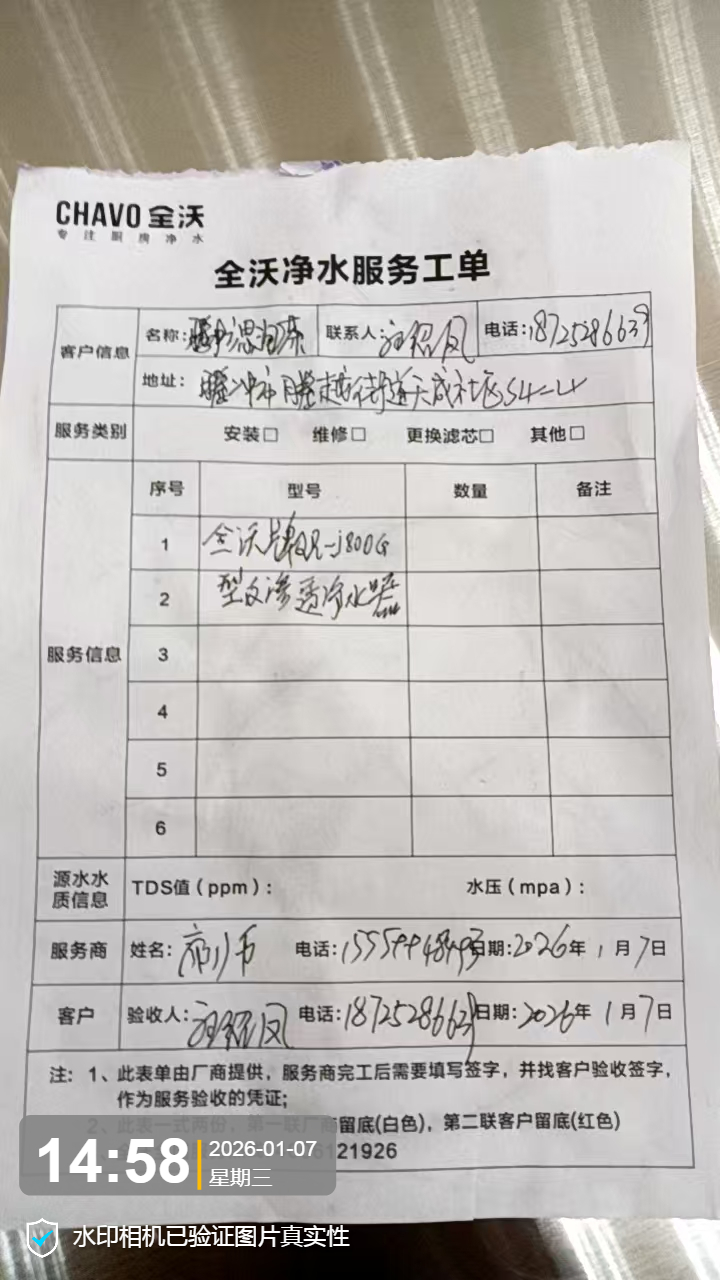 CHAVO 全沃
专注厨房净水
全沃净水服务工单
客户信息 名称: 联系人: 电话:
地址: 腾冲市腾越街道天成社区S4-24
服务类别 安装□ 维修□ 更换滤芯□ 其他□
服务信息 序号 型号 数量 备注
1 全沃牌QR-J800G
2 型反渗透净水器
3
4
5
6
源水水质信息 TDS值(ppm): 水压(mpa):
服务商 姓名: 电话: 日期:2026年1月7日
客户 验收人: 电话: 日期:2026年1月7日
注: 1、此表单由厂商提供，服务商完工后需要填写签字，并找客户验收签字，
作为服务验收的凭证;
2、此表一式两份，第一联厂商留底(白色)，第二联客户留底(红色)
6121926
14:58 2026-01-07
星期三
水印相机已验证图片真实性